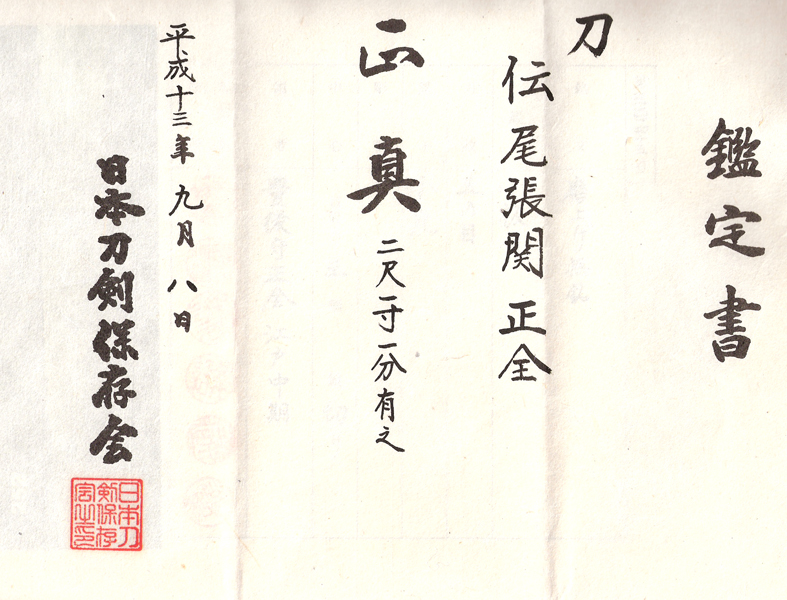 鑑定書
刀
伝尾張関正全
正真 二尺一寸一分有之
平成十三年九月八日
日本刀剣保存会
日本刀剣保存会之印